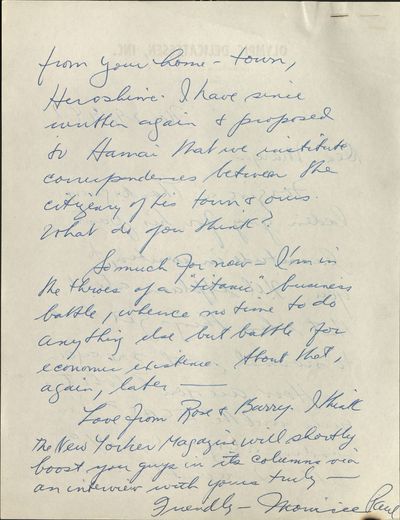 from your home-town,
Heroshima. I have since
written again & proposed
to Hamai that we institute
correspondences between the
citizenry of his town & ours.
What do you think?
So much for now - I'm in
the throes of a "titanic" business
battle, whence no time to do
anything else but battle for
economic existence. About that,
again, later —
Love from Rose & Barry. I think
The New Yorker Magazine will shortly
boost you guys in its columns via
an interview with yours truly —
Friendly - Maurice Paul